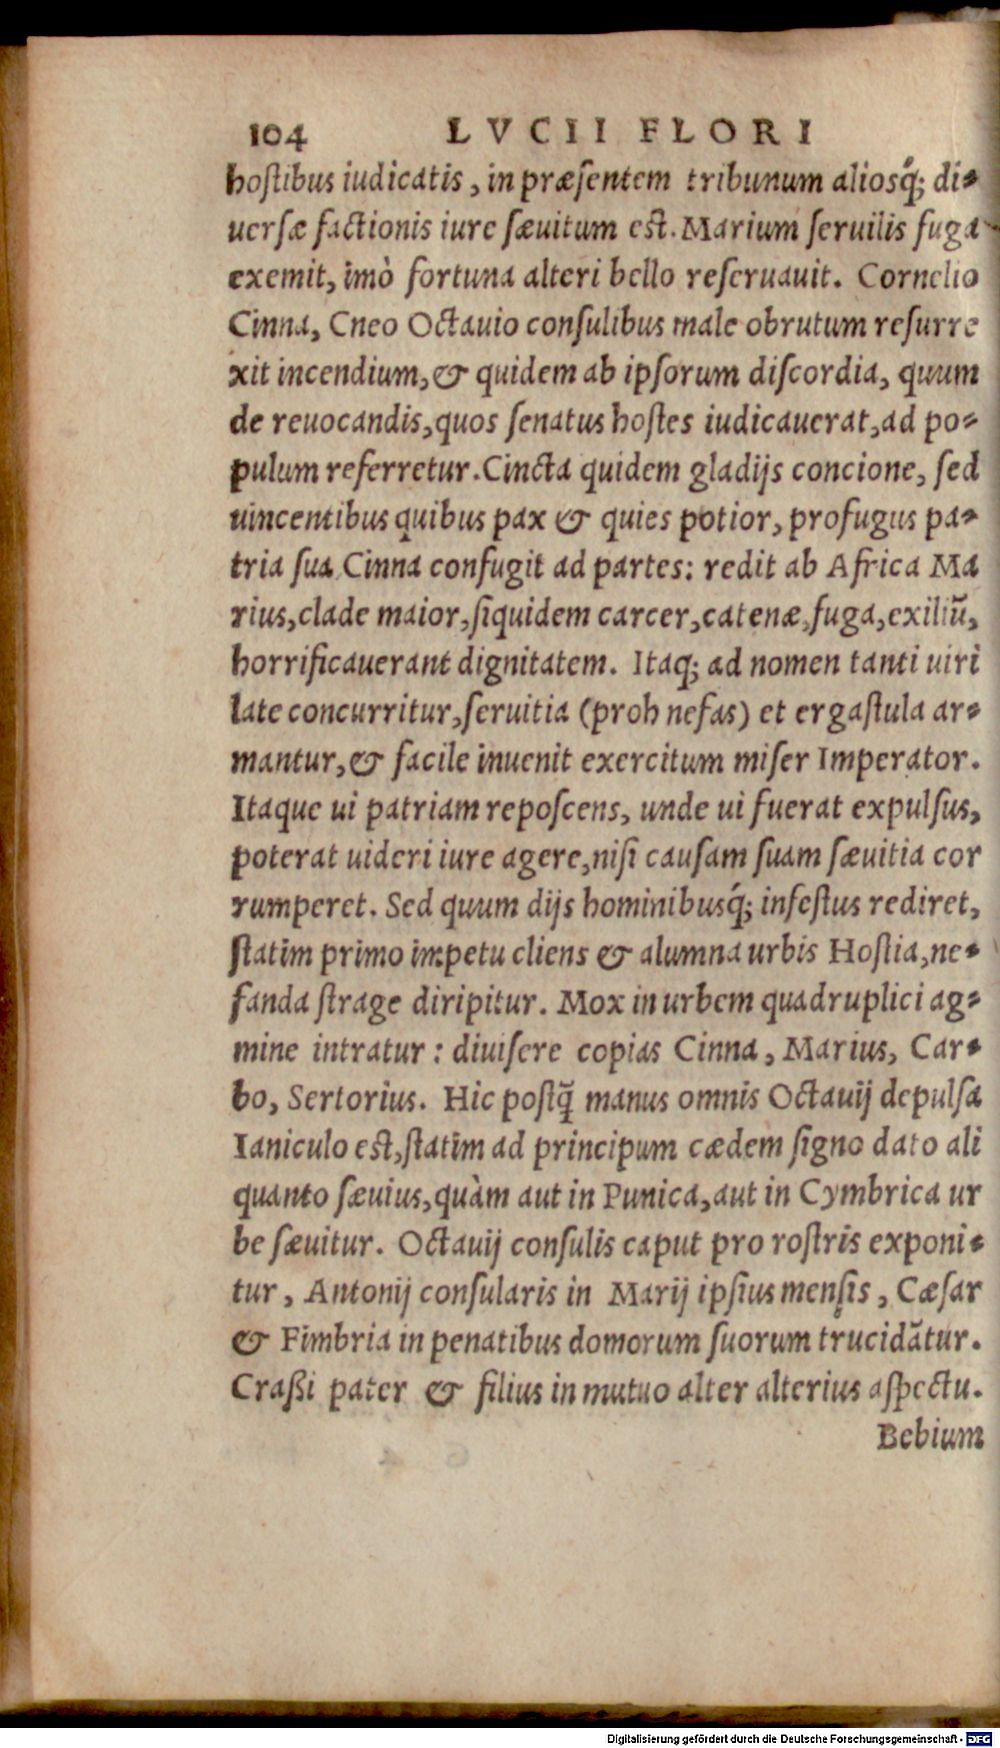 104 LVCII FLORI
hoſtibus iudicatis, in præſentem tribunum aliosq́; di-
uerſæ factionis iure ſæuitum eſt. Marium ſeruilis fuga
exemit, imò fortuna alteri bello reſeruauit. Cornelio
Cinna, Cneo Octauio conſulibus male obrutum reſurre
xit incendium, & quidem ab ipſorum diſcordia, quum
de reuocandis, quos ſenatus hoſtes iudicauerat, ad po-
pulum referretur. Cincta quidem gladijs concione, ſed
uincentibus quibus pax & quies potior, profugus pa-
tria ſua Cinna confugit ad partes: redit ab Africa Ma
rius, clade maior, ſiquidem carcer, catenæ, fuga, exiliũ,
horrificauerant dignitatem. Itaq; ad nomen tanti uiri
late concurritur, ſeruitia (proh nefas) et ergaſtula ar-
mantur, & facile inuenit exercitum miſer Imperator.
Itaque ui patriam repoſcens, unde ui fuerat expulſus,
poterat uideri iure agere, niſi cauſam ſuam ſæuitia cor
rumperet. Sed quum dijs hominibusq́; infeſtus rediret,
ſtatim primo impetu cliens & alumna urbis Hoſtia, ne-
fanda ſtrage diripitur. Mox in urbem quadruplici ag-
mine intratur: diuiſere copias Cinna, Marius, Car-
bo, Sertorius. Hic poſtq̃ manus omnis Octauij depulſa
Ianiculo eſt, ſtatim ad principum cædem ſigno dato ali
quanto ſæuius, quàm aut in Punica, aut in Cymbrica ur
be ſæuitur. Octauij conſulis caput pro roſtris exponi-
tur, Antonij conſularis in Marij ipſius menſis, Cæſar
& Fimbria in penatibus domorum ſuorum trucidãtur.
Craßi pater & filius in mutuo alter alterius aſpectu.
Bebium
Digitalisierung gefördert durch die Deutsche Forschungsgemeinschaft - DFG